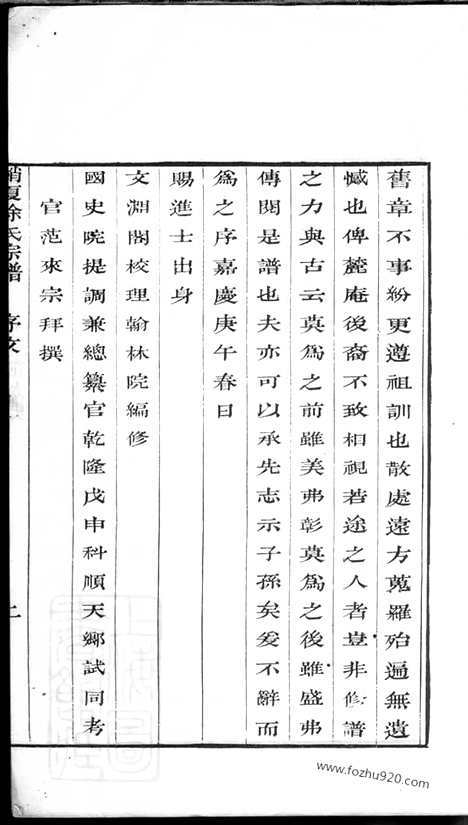 舊章不事紛更遵祖訓也散處遠方蒐羅殆遍無遺
憾也俾麓庵後裔不致相視若途之人者豈非修譜
之力與古云莫爲之前雖美弗彰莫爲之後雖盛弗
傳閱是譜也夫亦可以承先志示子孫矣爰不辭而
爲之序嘉慶庚午春日
賜進士出身
文淵閣校理翰林院編修
國史院提調兼總纂官乾隆戊申科順天鄉試同考
官范來宗拜撰
消夏徐氏宗譜 序文 二
www.fozhu920.com